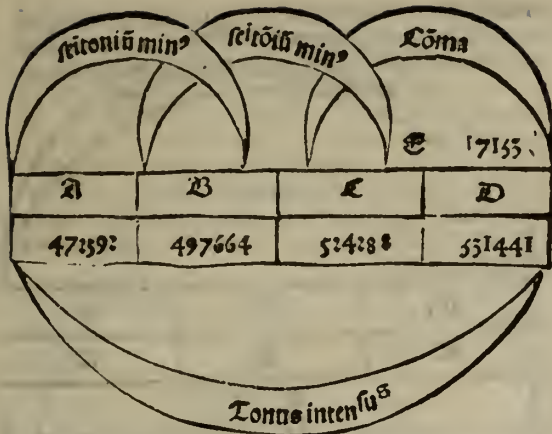 ſemitoniũ minꝰ ſemitõiũ minꝰ Cõma
E 17153
A B C D
472392 497664 524288 531441
Tonus intenſus